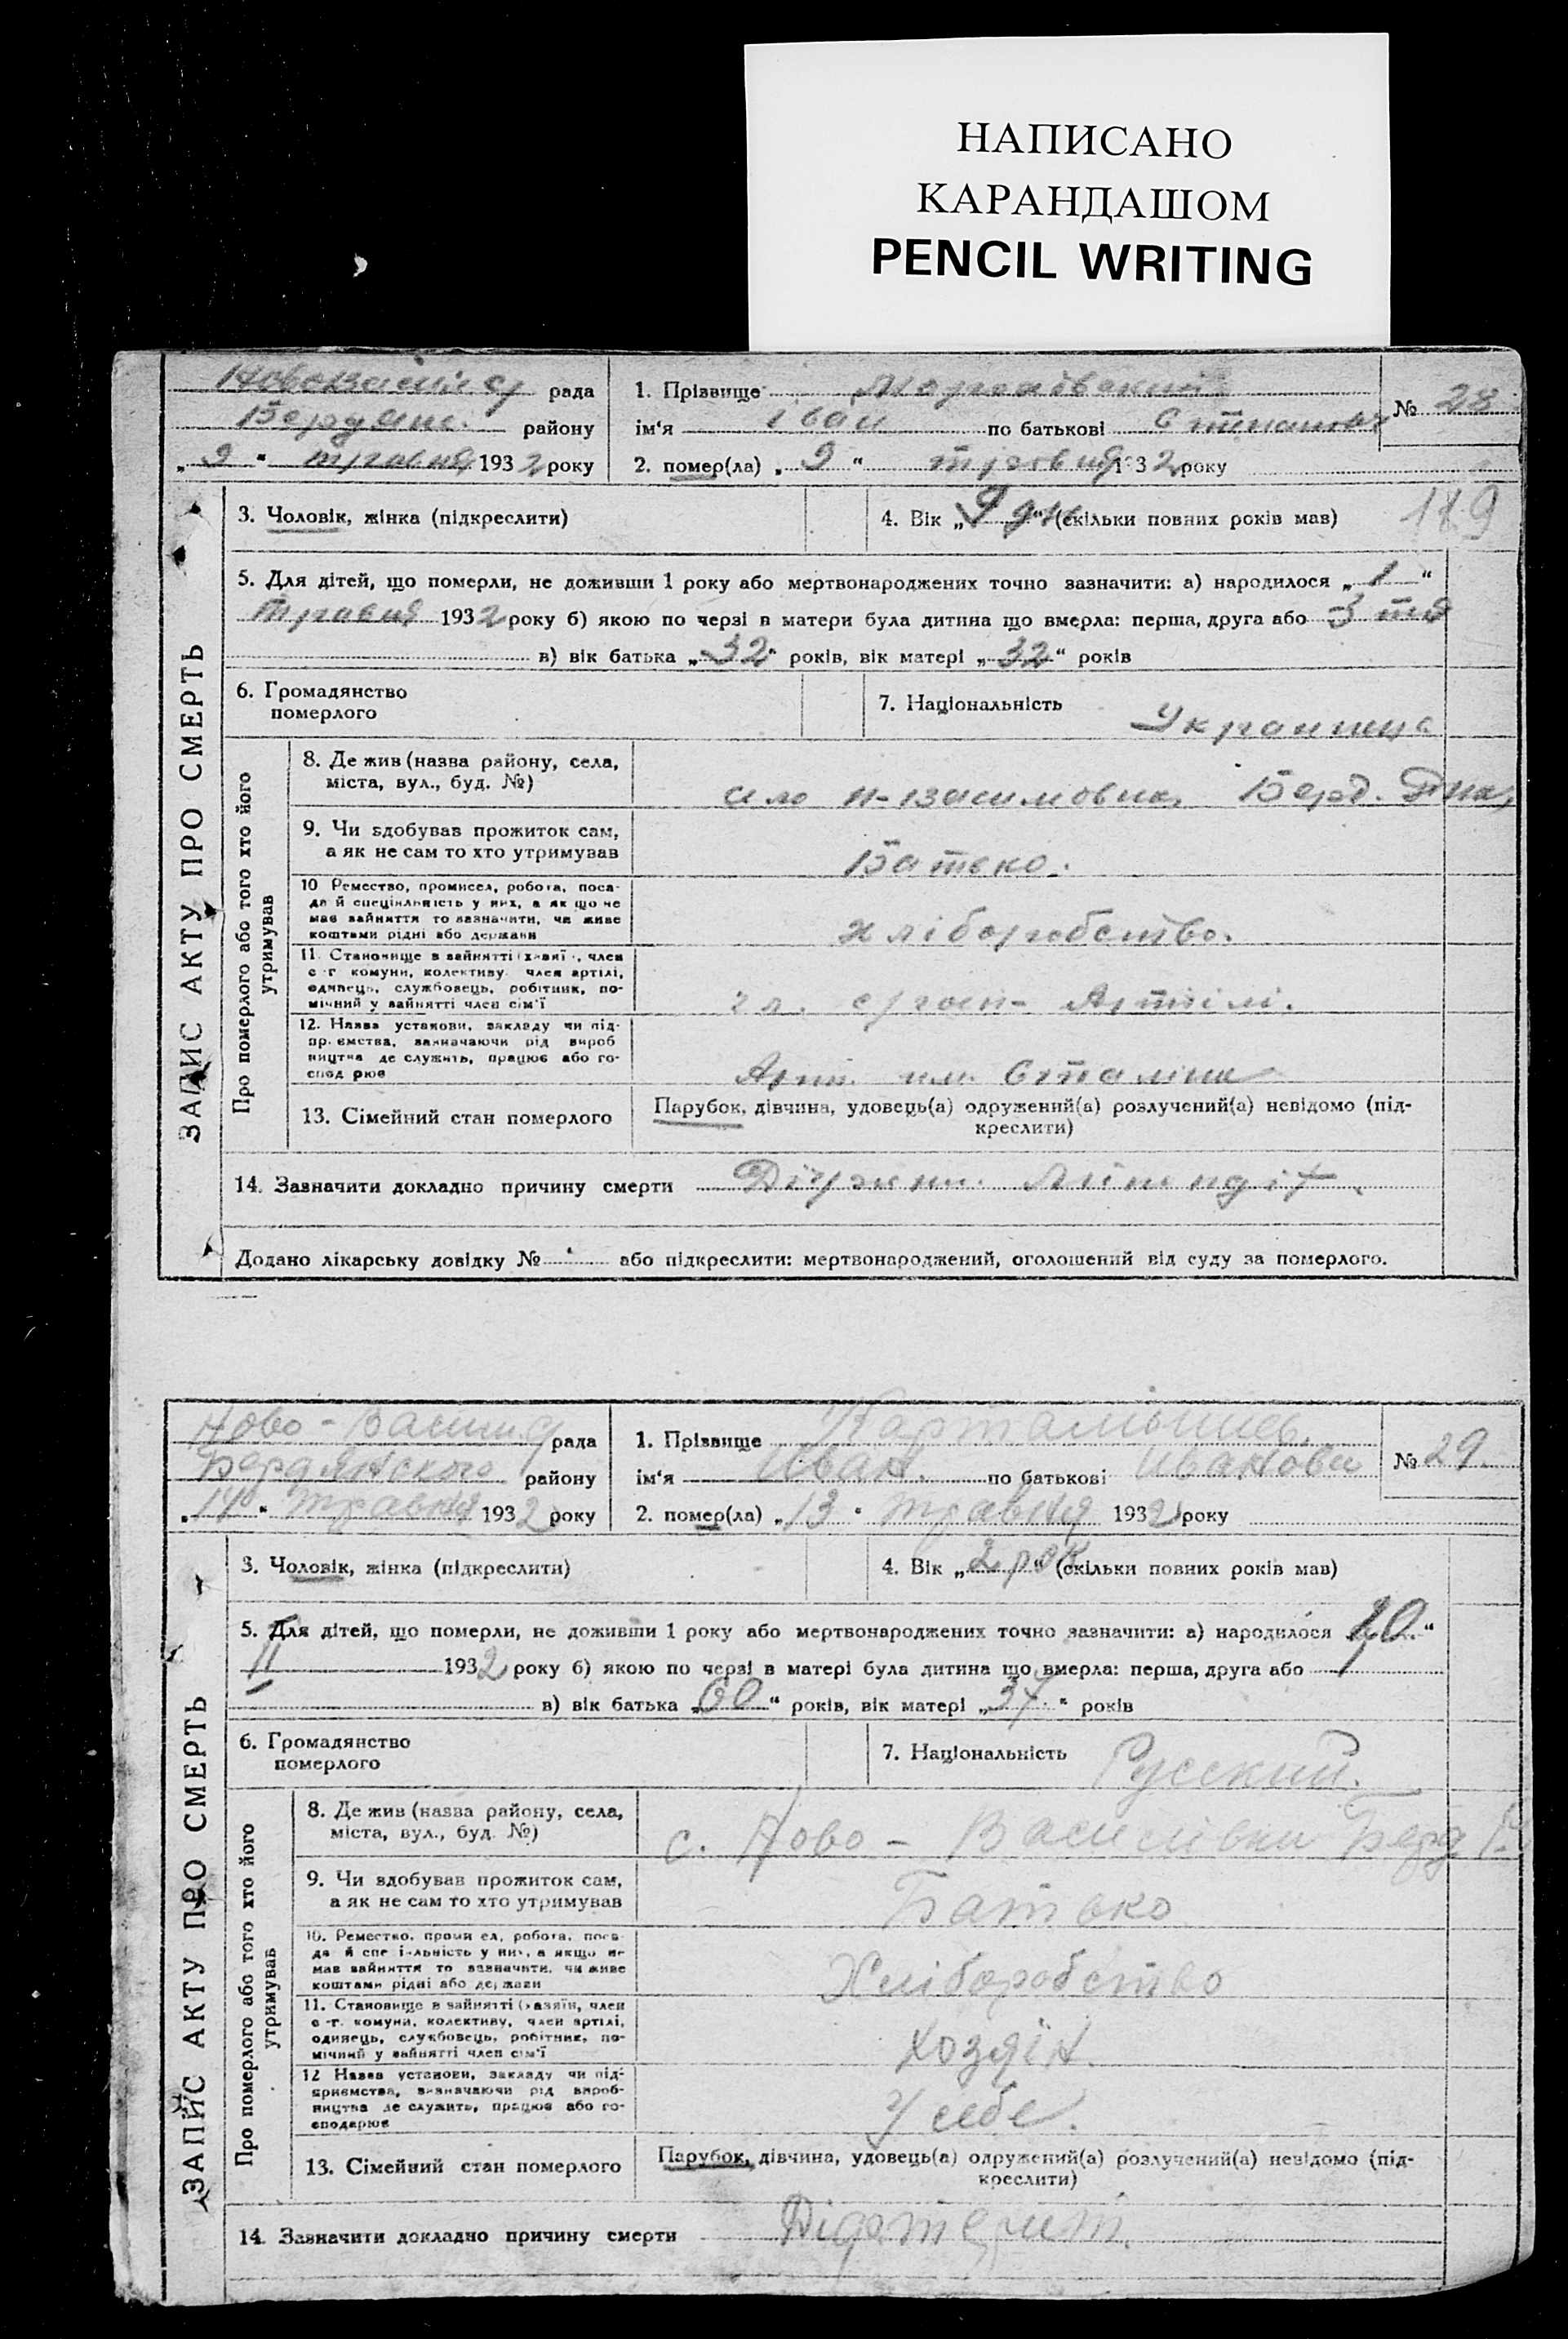 НАПИСАНО
КАРАНДАШОМ
PENCIL WRITING
рада
району
„ 9 “ травня 1932 року
1. Прізвище
ім'я Іван по батькові
№ 28
2. помер(ла) „ 9 “ травня 1932 року
3. Чоловік, жінка (підкреслити)
4. Вік „ 9 дн “ (скільки повних років мав)
189
5. Для дітей, що померли, не доживши 1 року або мертвонароджених точно зазначити: а) народилося „ 1 “
травня 1932 року б) якою по черзі в матери була дитина що вмерла: перша, друга або 3 тя
в) вік батька „ 32 “ років, вік матері „ 32 “ років
6. Громадянство
померлого
7. Національність
ЗАПИС АКТУ ПРО СМЕРТЬ
Про померлого або того хто його
утримував
8. Де жив (назва району, села,
міста, вул., буд. №)
село Берд.
9. Чи здобував прожиток сам,
а як не сам то хто утримував
Батько.
10 Ремество, промисел, робота, поса-
да й спеціяльність у них, а як що не
мав зайняття то зазначити, чи живе
коштами рідні або держави
хліборобство.
11. Становище в зайнятті (хазяїн, член
с-г комуни, колективу член артілі,
одинець, службовець, робітник, по-
мічний у зайнятті член сім'ї
чл. Артілі.
12. Назва установи, закладу чи під-
приємства, зазначаючи рід вироб
ництва де служить, працює або го-
сподарює
Арт. им. Сталина
13. Сімейний стан померлого
Парубок, дівчина, удовець(а) одружений(а) розлучений(а) невідомо (під-
креслити)
14. Зазначити докладно причину смерти
Додано лікарську довідку № або підкреслити: мертвонароджений, оголошений від суду за померлого.
Ново- рада
Бердянского району
„ 14 “ травня 1932 року
1. Прізвище Картамышев.
ім'я Иван. по батькові Иванови
№ 29.
2. помер(ла) „ 13 “ травня 1932 року
3. Чоловік, жінка (підкреслити)
4. Вік „ 2 рок “ (скільки повних років мав)
5. Для дітей, що померли, не доживши 1 року або мертвонароджених точно зазначити: а) народилося
II 1932 року б) якою по черзі в матері була дитина що вмерла: перша, друга або
в) вік батька „ 60 “ років, вік матері „ 37 “ років
6. Громадянство
померлого
7. Національність Русский.
ЗАПИС АКТУ ПРО СМЕРТЬ
Про померлого або того хто його
утримував
8. Де жив (назва району, села,
міста, вул., буд. №)
с. Ново - Василівки Берд Р.
9. Чи здобував прожиток сам,
а як не сам то хто утримував
Батько
10. Ремество, промисел, робота, поса-
да й спеціяльність у них, а якщо не
мав зайняття то зазначити, чи живе
коштами рідні або держави
Хліборобство
11. Становище в зайнятті (хазяїн, член
с-г. комуни, колективу, член артілі,
одинець, службовець, робітник, по-
мічний у зайнятті член сім'ї
Хозяїн.
12 Назва установи, закладу чи під-
приємства, зазначаючи рід вироб-
ництва де служить, працює або го-
сподарює
У себе.
13. Сімейний стан померлого
Парубок, дівчина, удовець(а) одружений(а) розлучений(а) невідомо (під-
креслити)
14. Зазначити докладно причину смерти Діфтерит.